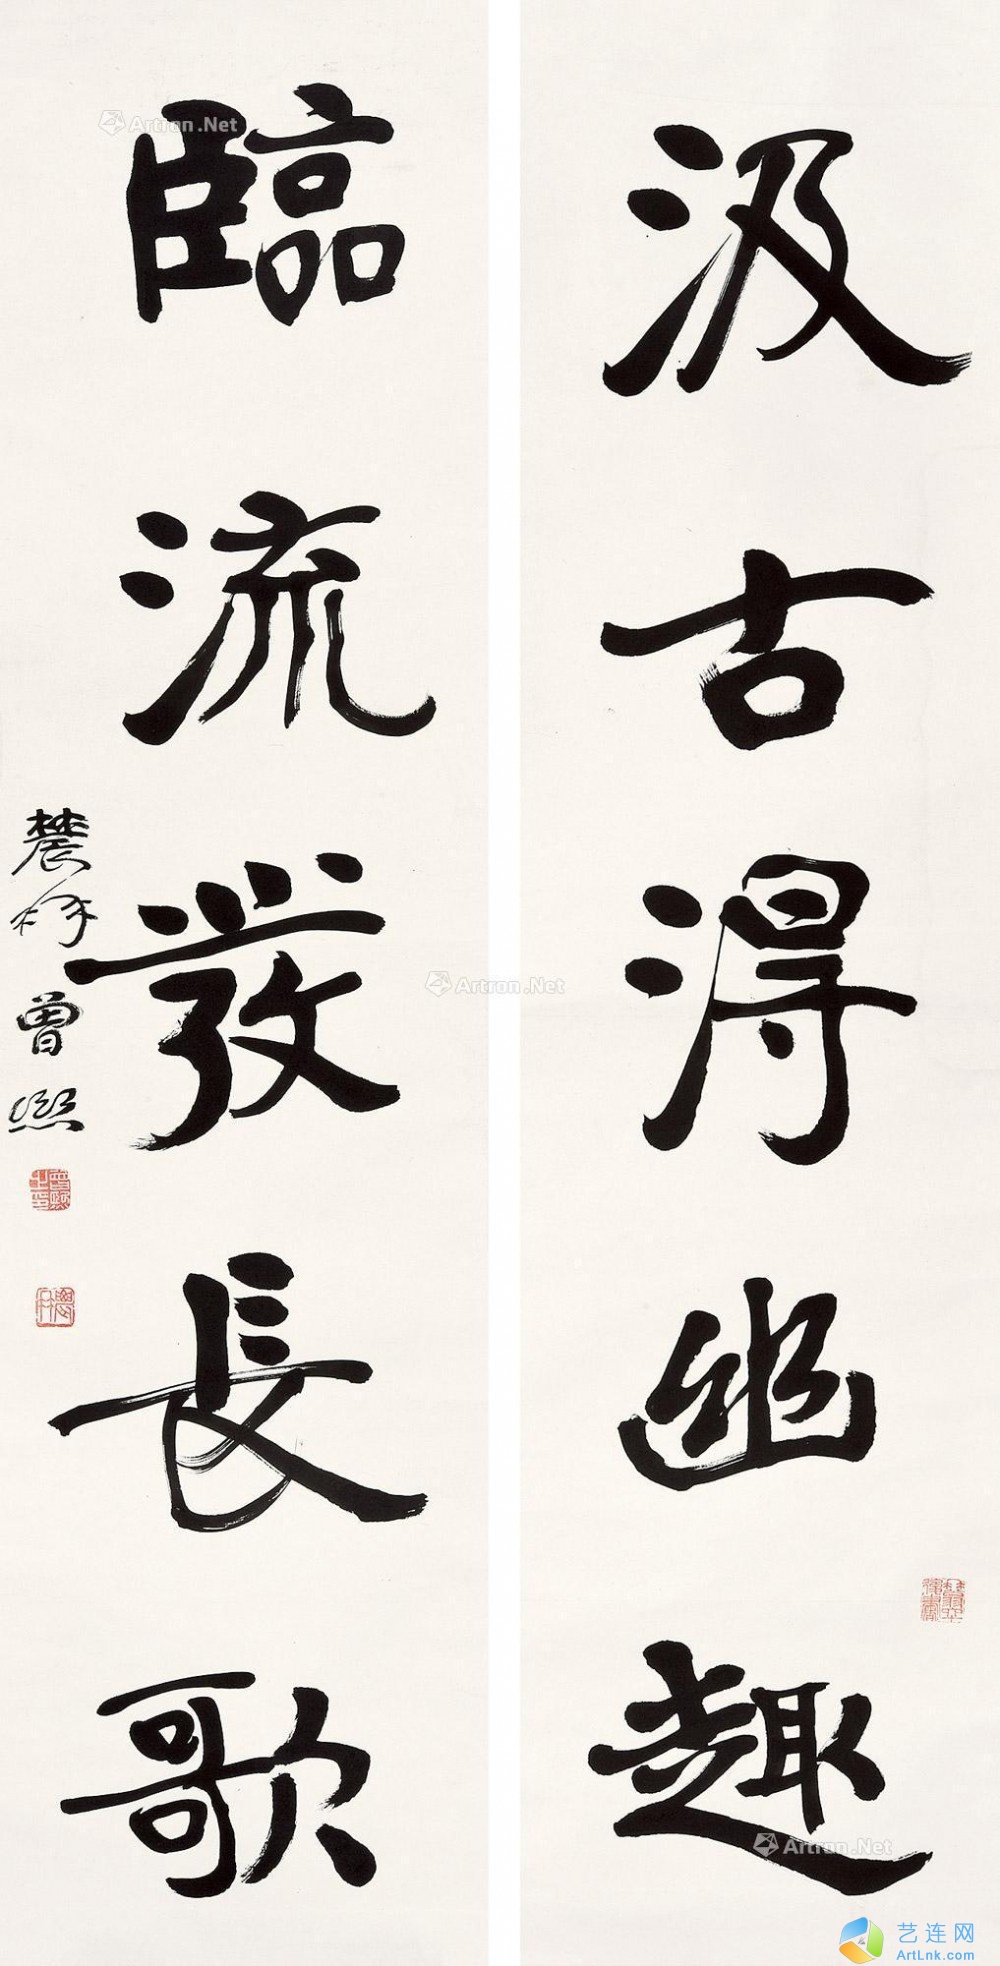 汲古得幽趣
臨流發長歌
農髯曾熙
Artron.Net
Artron.Net
Artron.Net
艺连网
ArtLnk.com